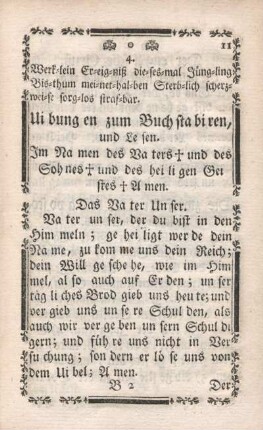 o 11
4.
Werk-lein Er-eig-niß die-ses-mal Jüng-ling
Bis-thum mei-net-hal-ben Sterb-lich scherz-
wei-se sorg-los straf-bar.
Ui bung en zum Buch sta bi ren,
und Le sen.
Im Na men des Va ters † und des
Soh nes † und des hei li gen Gei
stes † A men.
Das Va ter Un ser.
Va ter un ser, der du bist in den
Him meln; ge hei ligt wer de dein
Na me, zu kom me uns dein Reich;
dein Will ge sche he, wie im Him
mel, al so auch auf Er den; un ser
täg li ches Brod gieb uns heu te; und
ver gieb uns un se re Schul den, als
auch wir ver ge ben un sern Schul di
gern; und füh re uns nicht in Ver
su chung; son dern er lö se uns von
dem Ui bel; A men.
B 2 Der